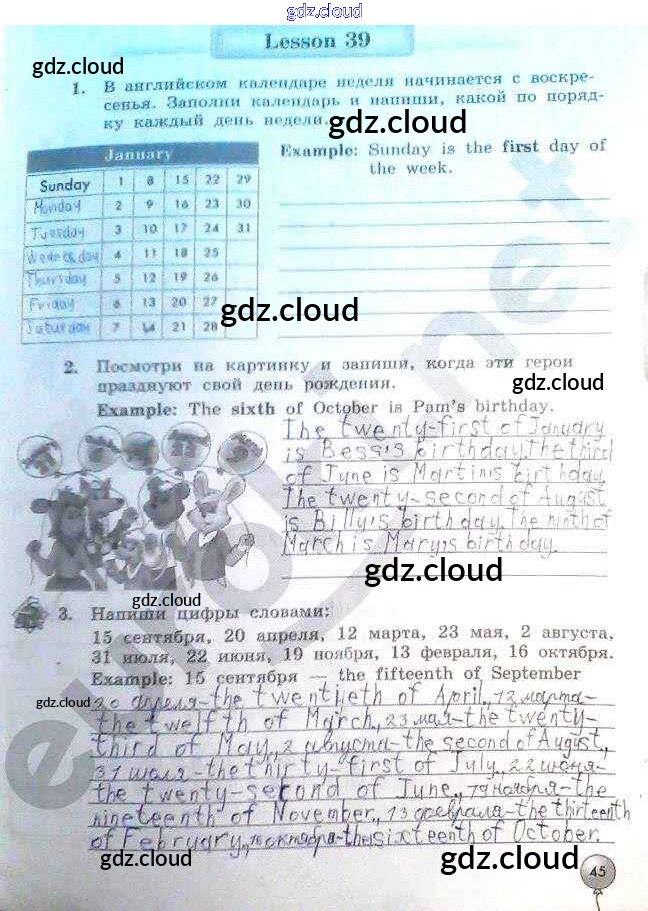 gdz.cloud
Lesson 39
gdz.cloud
1. В английском календаре неделя начинается с воскре-
сенья. Заполни календарь и напиши, какой по поряд-
ку каждый день недели.
gdz.cloud
January
Sunday 1 8 15 22 29
Monday 2 9 16 23 30
Tuesday 3 10 17 24 31
Wednesday 4 11 18 25
Thursday 5 12 19 26
Friday 6 13 20 27
Saturday 7 14 21 28
Example: Sunday is the first day of
the week.
gdz.cloud
2. Посмотри на картинку и запиши, когда эти герои
празднуют свой день рождения.
gdz.cloud
Example: The sixth of October is Pam's birthday.
The twenty-first of January
is Bess's birthday. The third
of June is Martin's birthday.
The twenty-second of August
is Billy's birthday. The ninth of
March is Mary's birthday.
gdz.cloud
gdz.cloud
3. Напиши цифры словами:
15 сентября, 20 апреля, 12 марта, 23 мая, 2 августа,
31 июля, 22 июня, 19 ноября, 13 февраля, 16 октября.
Example: 15 сентября — the fifteenth of September
gdz.cloud
20 апреля-the twentieth of April, 12 марта-
the twelfth of March, 23 мая-the twenty-
third of May, 2 августа-the second of August,
31 июля-the thirty-first of July, 22 июня-
the twenty-second of June, 19 ноября-the
nineteenth of November, 13 февраля-the thirteenth
of February, 16 октября-the sixteenth of October.
gdz.cloud
gdz.cloud
45